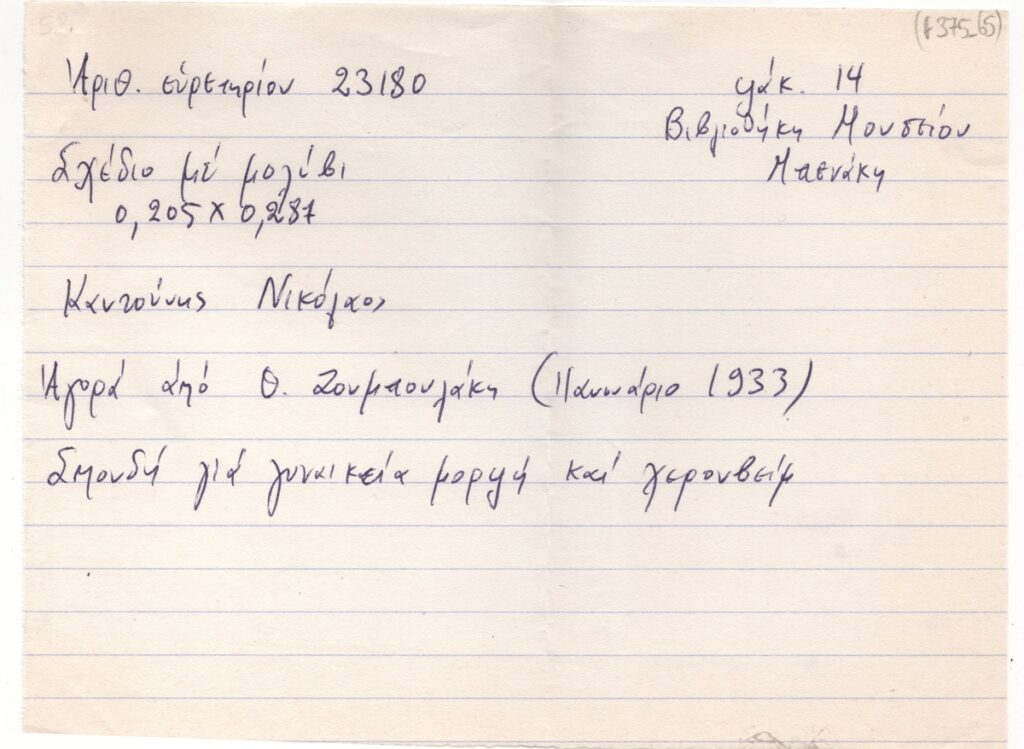 52.
(Φ375_65)
Ἀριθ. εὑρετηρίου 23180
φάκ. 14
Βιβλιοθήκη Μουσείου
Μπενάκη
Σχέδιο μέ μολύβι
0,205 × 0,287
Καντούνης Νικόλαος
Ἀγορά ἀπό Θ. Ζουμπουλάκη (Ἰανουάριο 1933)
Σπουδή γιά γυναικεία μορφή καί χερουβείμ